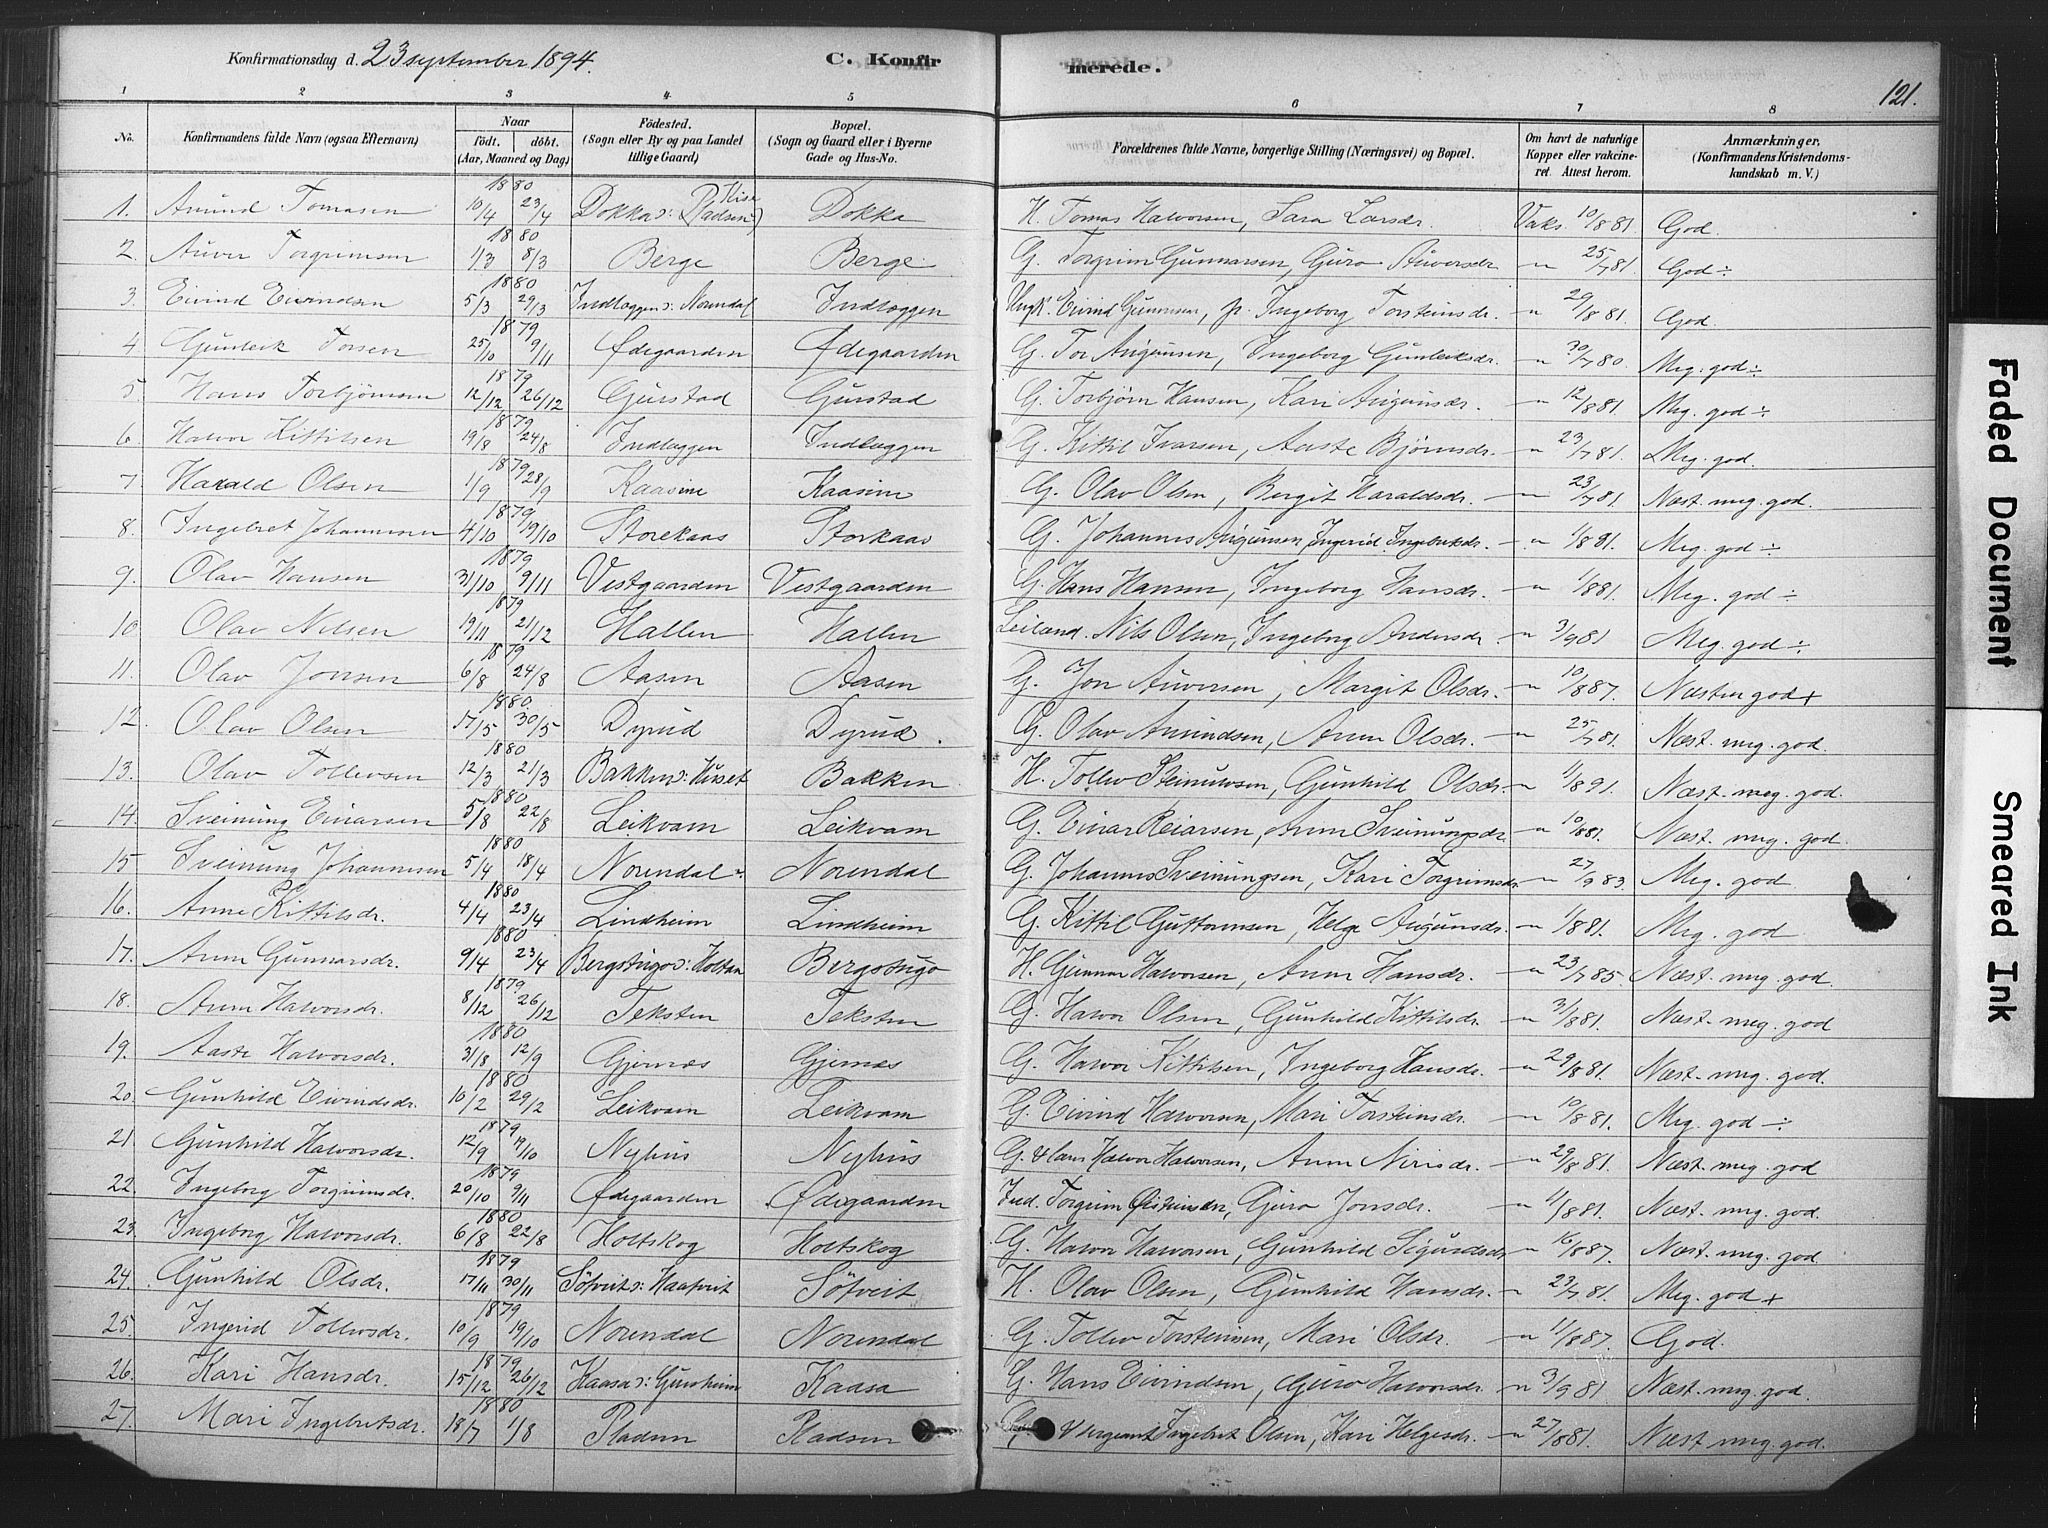 Konfirmationsdag d. 23 september 1894. C. Konfir merede. 121.
1 2 3 4 5 6 7 8
No. Konfirmandens fulde Navn (ogsaa Efternavn) Naar födt. döbt. (Aar, Maaned og Dag) Födested. (Sogn eller By og paa Landet tillige Gaard) Bopæl. (Sogn og Gaard eller i Byerne Gade og Hus-No. Forældrenes fulde Navne, borgerlige Stilling (Næringsvei) og Bopæl. Om havt de naturlige Kopper eller vakcineret. Attest herom. Anmærkninger. (Konfirmandens Kristendomskundskab m. V.)
1. Amund Tomasen 1880 10/4 23/4 Dokka ɔ: (Kise Pladsen) Dokka H. Tomas Halvorsen, Sara Larsdr. Vaks. 10/8 81. God.
2. Auver Torgrimsen 1880 1/3 8/3 Berge Berge G. Torgrim Gunnarsen, Guro Auversdr " 25/7 81. God ÷
3. Eivind Eivindsen 1880 5/3 29/3 Indlæggen ɔ: Norendal Indlæggen Ungk. Eivind Gunnarsen, p. Ingeborg Torsteinsdr. " 29/8 81. God.
4 Gunleik Torsen 1879 25/10 9/11 Ødegaarden Ødegaarden G. Tor Augunsen, Ingeborg Gunleiksdr. " 30/7 80. Meg. god ÷
5 Hans Torbjörnsen 1879 12/12 26/12 Gurstad Gurstad G. Torbjörn Hansen, Kari Augunsdr. " 12/8 81. Meg. god ÷
6. Halvor Kittilsen 1879 19/8 24/8 Indlæggen Indlæggen G. Kittil Ivarsen, Aaste Björnsdr. " 23/7 81. Meg. god.
7. Harald Olsen 1879 1/9 28/9 Kaasine Kaasine G. Olav Olsen, Bergit Haraldsdr. " 23/7 81. Næst. meg. god.
8. Ingebret Johannesen 1879 4/10 19/10 Storekaas Storkaas G. Johannes Augunsen, Ingerid Ingebretsdr. " 1/8 81. Meg. god ÷
9. Olav Hansen 1879 31/10 9/11 Vestgaarden Vestgaarden G. Hans Hansen, Ingeborg Hansdr. " 1/8 81. Meg. god ÷
10. Olav Nilsen 1879 19/11 21/12 Hallen Hallen Leiland. Nils Olsen, Ingeborg Andersdr. " 3/9 81 Meg. god ÷
11. Olav Jonsen 1879 6/8 24/8 Aasen Aasen G. Jon Auversen, Margit Olsdr. " 10/8 87. Næsten god +
12. Olav Olsen 1880. 17/5 30/5 Dyrud Dyrud. G. Olav Amundsen, Anne Olsdr. " 25/7 81. Næst. meg. god.
13. Olav Tollevsen 1880 12/3 21/3 Bakken ɔ: Huset Bakken H. Tollev Steinulvsen, Gunhild Olsdr. " 1/8 91. Næst. meg. god.
14. Sveinung Einarsen 1880 5/8 22/8 Leikvam Leikvam G. Einar Reiarsen, Anne Sveinungsdr " 10/8 81. Næst. meg. god
15 Sveinung Johannesen 1880 5/4 18/4 Norendal. Norendal G. Johannes Sveinungsen, Kari Torgrimsdr " 27/9 83. Meg. god
16. Anne Kittilsdr. 1880 4/4 23/4 Lindheim Lindheim G. Kittil Guttormsen, Helge Augunsdr. " 1/8 81. Meg. god
17. Anne Gunnarsdr. 1880 9/4 23/4 Bergstugo ɔ: Holtan Bergstugo H. Gunnar Halvorsen, Anne Hansdr. " 23/7 85. Næst. meg. god
18. Anne Halvorsdr. 1879. 8/12 26/12 Teksten Teksten G. Halvor Olsen, Gunhild Kittilsdr. " 31/8 81. Næst. meg. god
19. Aaste Halvorsdr. 1880 31/8 12/9 Gjernæs Gjernæs G. Halvor Kittilsen, Ingeborg Hansdr. " 29/8 81. Næst. meg. god.
20. Gunhild Eivindsdr. 1880 10/2 29/2 Leikvam Leikvam G. Eivind Halvorsen, Mari Torsteinsdr. " 10/8 81. Meg. god ÷
21. Gunhild Halvorsdr. 1879 12/9 19/10 Nyhus Nyhus G. & Lens. Halvor Halvorsen, Anne Nirisdr. " 29/8 81. Næst. meg. god
22. Ingeborg Torgrimsdr. 1879 20/10 9/11 Ødegaarden Ødegaarden Ind. Torgrim Østensen, Guro Jonsdr. " 1/8 81. Næst. meg. god
23. Ingeborg Halvorsdr. 1880 6/8 22/8 Holtskog Holtskog G. Halvor Halvorsen, Gunhild Sigurdsdr " 16/8 87. Næst. meg. god
24. Gunhild Olsdr. 1879 17/11 30/11 Sötveit ɔ: Haatveit Sötveit H. Olav Olsen, Gunhild Hansdr. " 23/7 81. Meg. god +
25. Ingerid Tollevsdr. 1879 10/9 19/10 Norendal Norendal G. Tollev Torsteinsen, Mari Olsdr. " 11/8 87. God.
26. Kari Hansdr. 1879 15/12 26/12 Kaasa ɔ: Gunheim Kaasa G. Hans Eivindsen, Guro Halvorsdr. " 3/9 81. Næst. meg. god.
27. Mari Ingebretsdr. 1880 18/7 1/8 Pladsen Pladsen G. & Sergeant Ingebret Olsen, Kari Helgesdr. " 27/8 81. Næst meg. god.
Faded Document
Smeared Ink